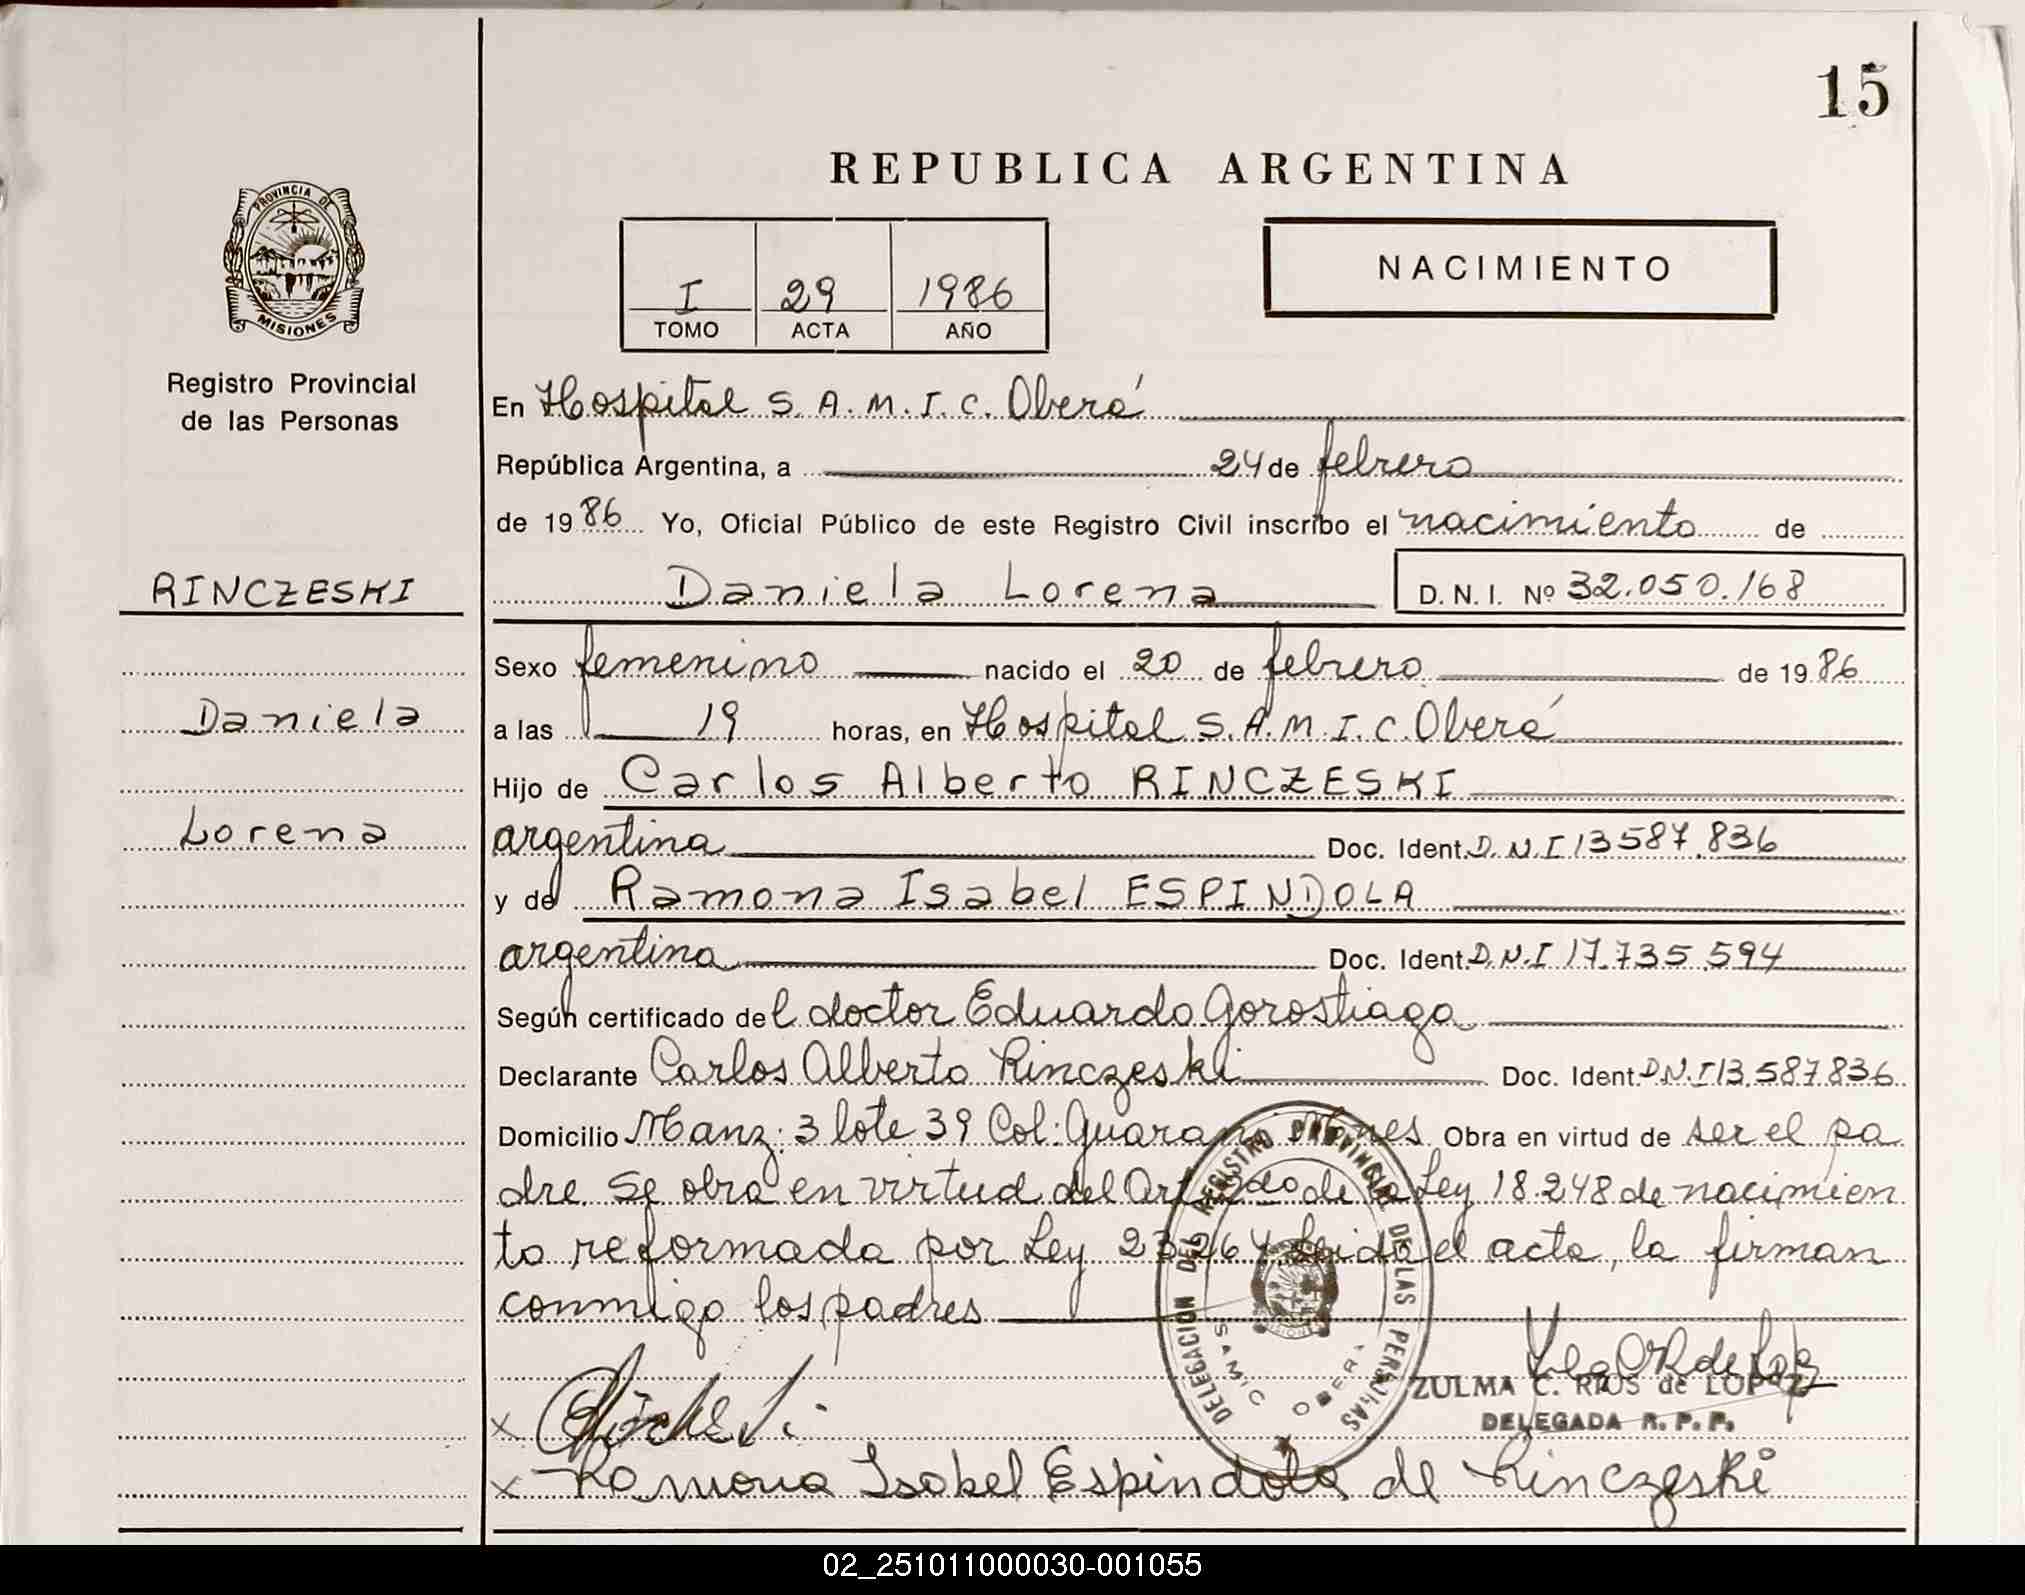 15
REPUBLICA ARGENTINA
PROVINCIA DE
MISIONES
I 29 1986
TOMO ACTA AÑO
NACIMIENTO
Registro Provincial
de las Personas
RINCZESKI
Daniela
Lorena
En Hospital S.A.M.I.C. Oberá
República Argentina, a 24 de febrero
de 1986 Yo, Oficial Público de este Registro Civil inscribo el nacimiento de
Daniela Lorena D.N.I. Nº 32.050.168
Sexo femenino nacido el 20 de febrero de 1986
a las 19 horas, en Hospital S.A.M.I.C. Oberá
Hijo de Carlos Alberto RINCZESKI
argentina Doc. Ident. D.N.I 13587.836
y de Ramona Isabel ESPINDOLA
argentina Doc. Ident. D.N.I 17.735.594
Según certificado del doctor Eduardo Gorostiaga
Declarante Carlos Alberto Rinczeski Doc. Ident. D.N.I 13.587836
Domicilio Manz: 3 lote 39 Col: Guarani Mnes Obra en virtud de ser el pa
dre. Se obra en virtud del Art 2do de la Ley 18.248 de nacimien
to reformada por Ley 23264 Leida el acta, la firman
conmigo los padres
DELEGACION DEL REGISTRO PROVINCIAL DE LAS PERSONAS
SAMIC OBERA
ZULMA C. RIOS de LOPEZ
DELEGADA R. P. P.
x
x Ramona Isabel Espindola de Rinczeski
02_251011000030-001055